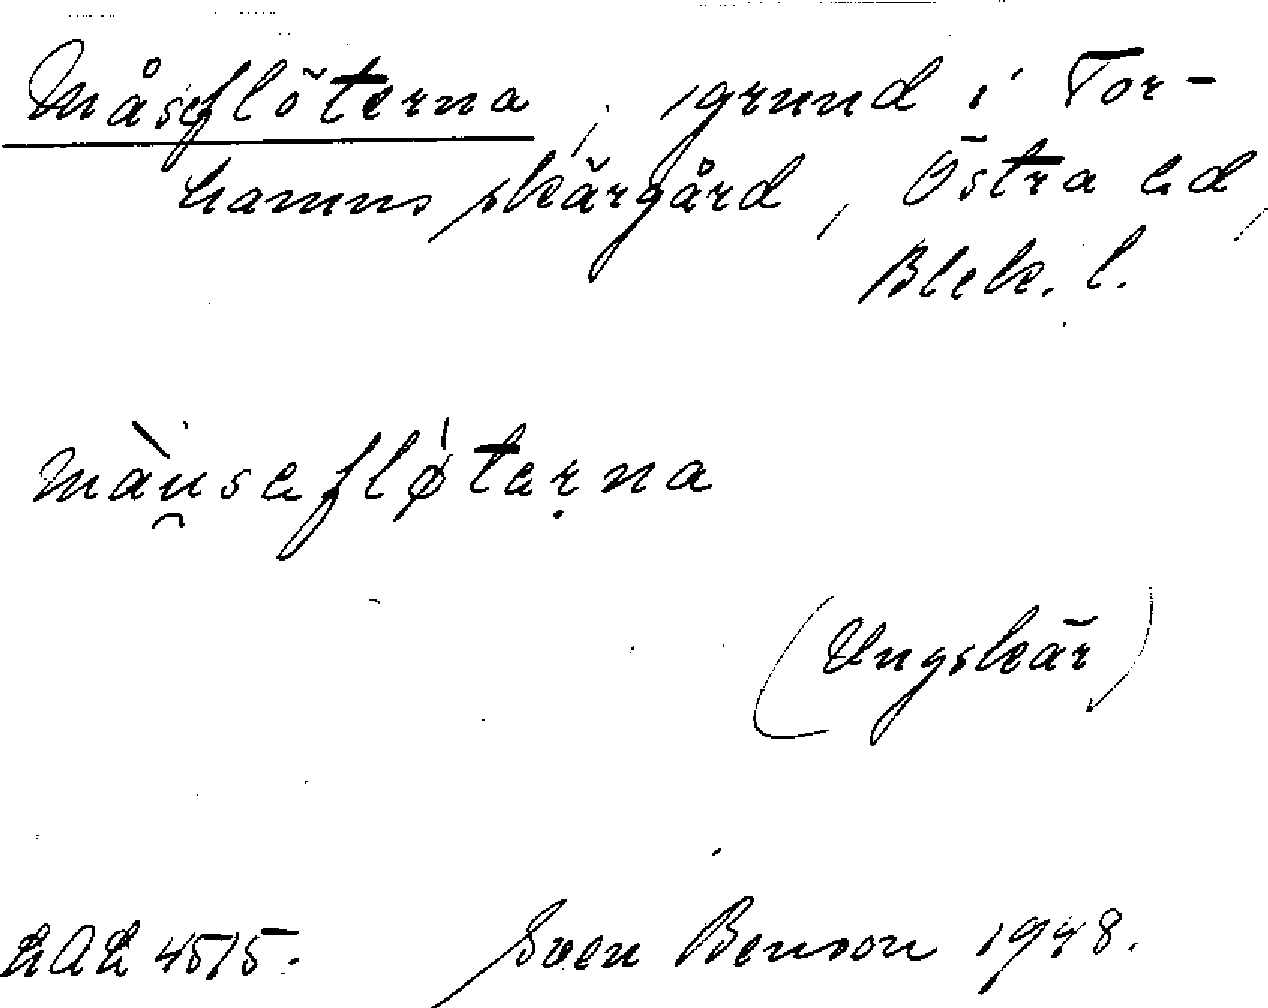 Måseflöterna, grund i Tor-
hamns skärgård, Östra hd,
Blek. l.
màu̯seflǿteṛna
(Ungskär)
LAL 4515. Sven Benson 1948.